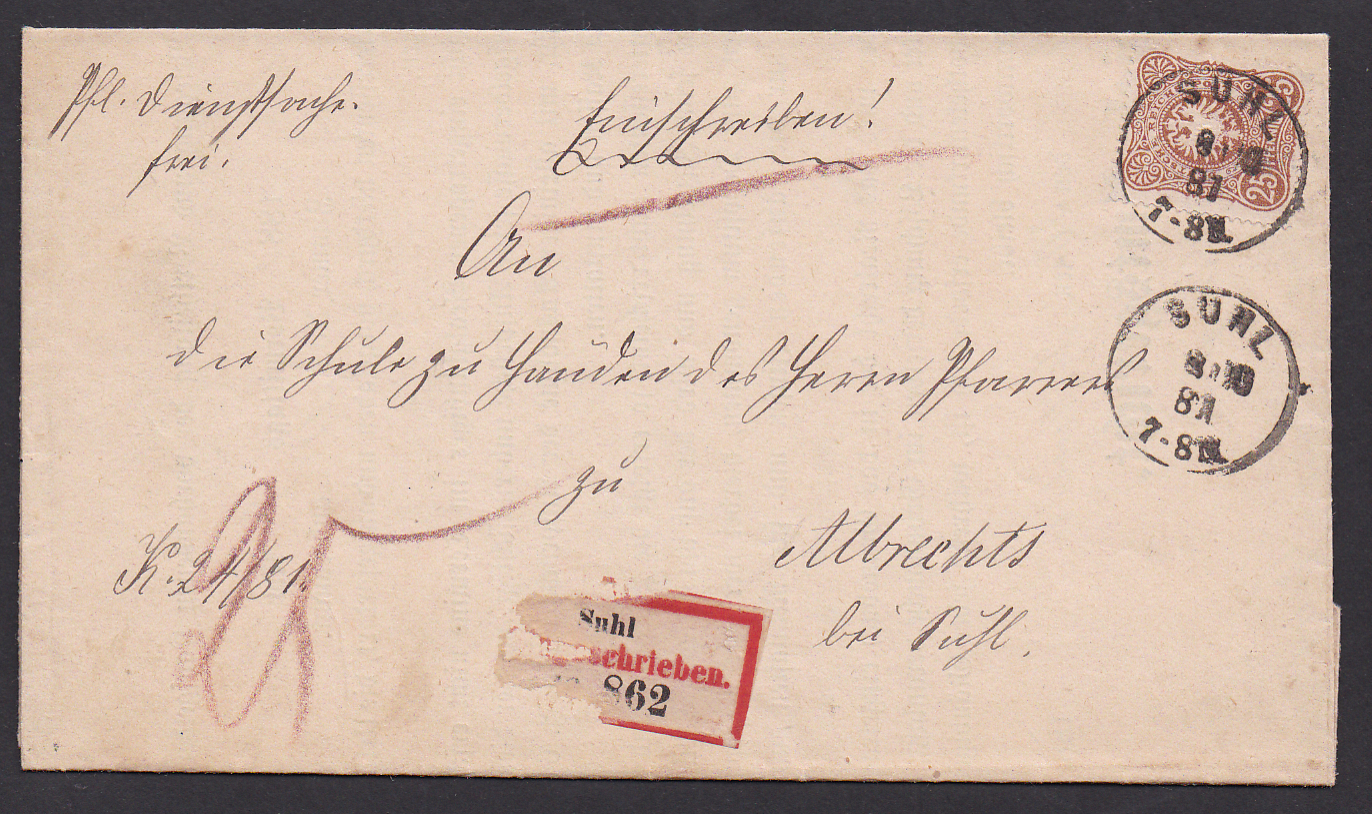 Pfl. Dienstsache.
frei.
Einschreiben!
An
die Schule zu Händen des Herrn Pfarrers
zu
Albrechts
bei Suhl.
K. 24/81.
25
Suhl
schrieben.
862
SUHL
81
7-8N.
SUHL
8 10
81
7-8N.
REICHS
25